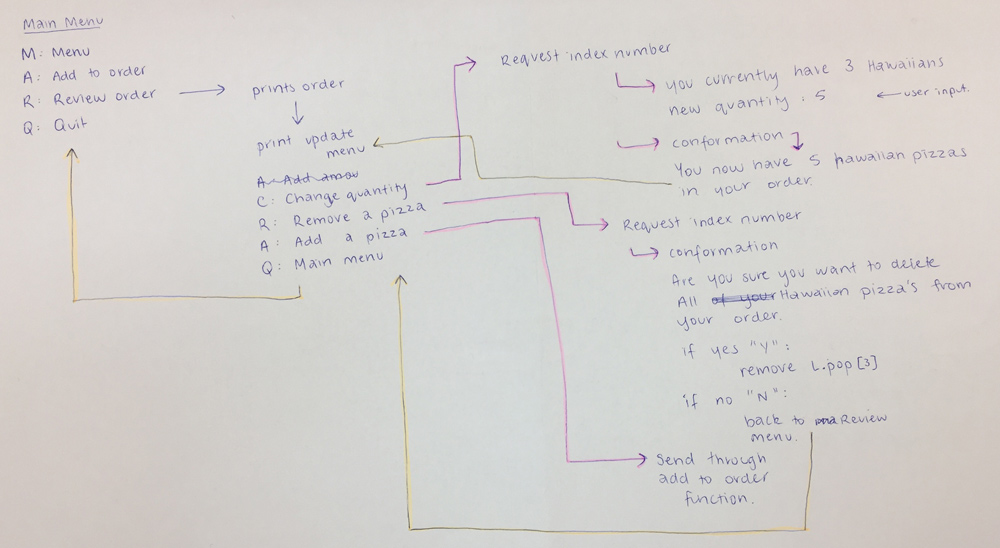 Main Menu
M: Menu
A: Add to order
R: Review order
Q: Quit
prints order
print update
menu
A: Add
C: Change quantity
R: Remove a pizza
A: Add a pizza
Q: Main menu
Request index number
you currently have 3 Hawaiians
new quantity : 5
user input.
conformation
You now have 5 hawaiian pizzas
in your order.
Request index number
conformation
Are you sure you want to delete
All of your Hawaiian pizza's from
your order.
if yes "Y":
remove L.pop[3]
if no "N":
back to Review
menu.
Send through
add to order
function.